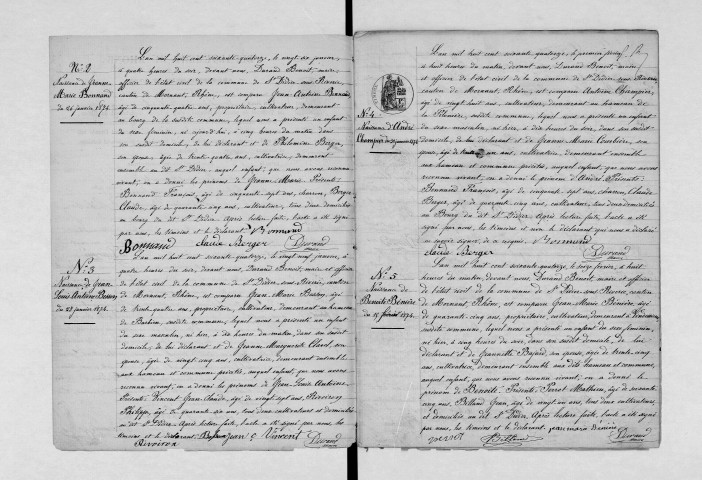 N.º 2
Naissance de Jeanne
Marie Bonnand
du 21 janvier 1874.
L'an mil huit cent soixante quatorze, le vingt un janvier,
à quatre heures du soir, devant nous, Durand Benoit, maire
officier de l'état civil de la commune de St Didier sous Riverie,
canton de Mornant, Rhône, est comparu Jean Antoine Bonnand
âgé de cinquante quatre ans, propriétaire, cultivateur, demeurant
au bourg de la susdite commune, lequel nous a présenté un enfant
du sexe féminin, né aujourd'hui, à cinq heures du matin dans
son susdit domicile, de lui déclarant et de Philomène Berger,
son épouse, âgée de trente quatre ans, cultivatrice, demeurant
ensemble au dit St Didier, auquel enfant, que nous avons reconnu
vivant, on a donné les prénoms de Jeanne Marie. Présents:
Bonnand François, âgé de cinquante sept ans, charron, Berger
Claude, âgé de quarante cinq ans, cultivateur, tous deux domiciliés
au bourg du dit St Didier. Après lecture faite, l'acte a été signé
par nous, les témoins et le déclarant. Bonnand
Bonnand Claude Berger Durand
N.º 3
Naissance de Jean
Louis Antoine
du 29 janvier 1874.
L'an mil huit cent soixante quatorze, le vingt neuf janvier, à
quatre heures du soir, devant nous, Durand Benoit, maire et officier
de l'état civil de la commune de St Didier, sous Riverie, canton
de Mornant, Rhône, est comparu Jean Marie, âgé
de trente quatre ans, propriétaire, cultivateur, demeurant au hameau
de, susdite commune, lequel nous a présenté un enfant
du sexe masculin, né hier, à dix heures du matin, dans son susdit
domicile, de lui déclarant et de Jeanne Marguerite, son
épouse, âgée de vingt cinq ans, cultivatrice, demeurant ensemble
aux hameau et commune précités, auquel enfant, que nous avons
reconnu vivant, on a donné les prénoms de Jean Louis Antoine.
Présents: Vincent Jean Claude, âgé de vingt sept ans,
Philippe, âgé de quarante six ans, tous deux cultivateurs et domiciliés
au dit St Didier. Après lecture faite, l'acte a été signé par nous, les
témoins et le déclarant. jean C Vincent
Durand
N.º 4
Naissance d'André
Champier du 31 janvier 1874
L'an mil huit cent soixante quatorze, le premier février,
à huit heures du matin, devant nous, Durand Benoit, maire
et officier de l'état civil de la commune de St Didier, sous Riverie,
canton de Mornant, Rhône, est comparu Antoine Champier,
âgé de vingt huit ans, cultivateur, demeurant au hameau de
la, susdite commune, lequel nous a présenté un enfant
du sexe masculin, né hier, à dix heures du soir, dans son susdit
domicile, de lui déclarant et de Jeanne Marie, son
épouse, âgée de trente ans, cultivatrice, demeurant ensemble
aux hameau et commune précités, auquel enfant, que nous avons
reconnu vivant, on a donné le prénom d'André. Présents:
Bonnand François, âgé de cinquante sept ans, charron, Claude
Berger, âgé de quarante cinq ans, cultivateur, tous deux domiciliés
au Bourg du dit St Didier. Après lecture faite, l'acte a été
signé par nous, les témoins et non le déclarant qui nous a déclaré
ne savoir signer, de ce requis. Bonnand
Claude Berger Durand
N.º 5
Naissance de
Benoite Benière
du 15 février 1874.
L'an mil huit cent soixante quatorze, le seize février, à huit
heures du matin, devant nous, Durand Benoit, maire et officier
de l'état civil de la commune de St Didier, sous Riverie, canton
de Mornant, Rhône, est comparu Jean Marie Benière, âgé
de quarante cinq ans, propriétaire, cultivateur, demeurant à
susdite commune, lequel nous a présenté un enfant du sexe féminin,
né hier, à cinq heures du soir, dans son susdit domicile, de lui
déclarant et de Jeannette, son épouse, âgée de trente cinq
ans, cultivatrice, demeurant ensemble aux dits hameau et commune,
auquel enfant, que nous avons reconnu vivant, on a donné le
prénom de Benoite. Présents: Mathieu, âgé de soixante
cinq ans, Jean, âgé de vingt un ans, tous deux cultivateurs,
et domiciliés au dit St Didier. Après lecture faite, l'acte a été signé
par nous, les témoins et le déclarant. jean marie Benière
Durand